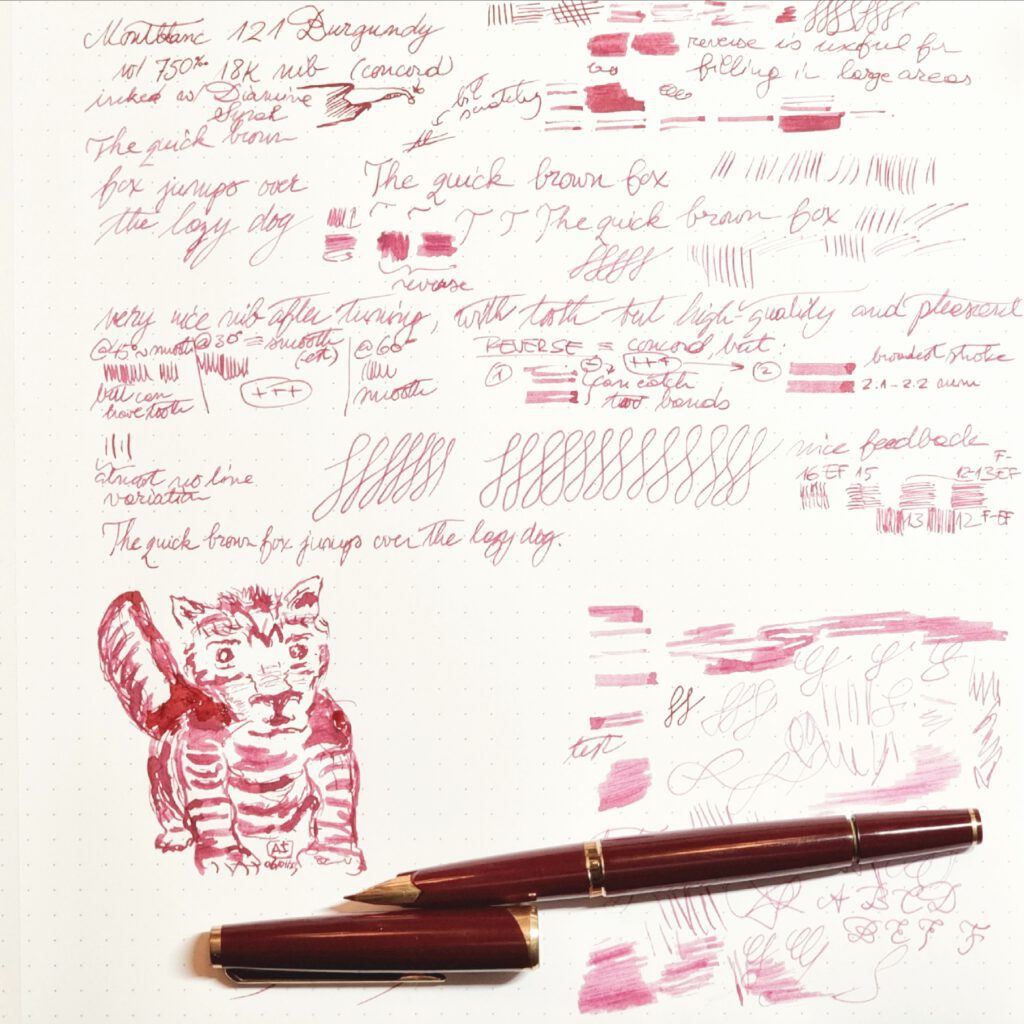 Montblanc 121 Burgundy
w/ 750‰ 18K nib (concord)
inked w/ Diamine
Syrah
The quick brown
fox jumps over
the lazy dog
bit
scratchy
reverse is useful for
filling in large areas
The quick brown fox
T T The quick brown fox
reverse
very nice nib after tuning, with tooth but high-quality and pleasant
@45° ~ smooth
but can
have tooth
@30° = smooth
+++
@60°
smooth
REVERSE = concord, but:
1
+++
2
can catch
two bands
broadest stroke
2.1-2.2 mm
almost no line
variation
nice feedback
16 EF 15
12-13 EF
13
12 F-EF
The quick brown fox jumps over the lazy dog.
test
A B C D